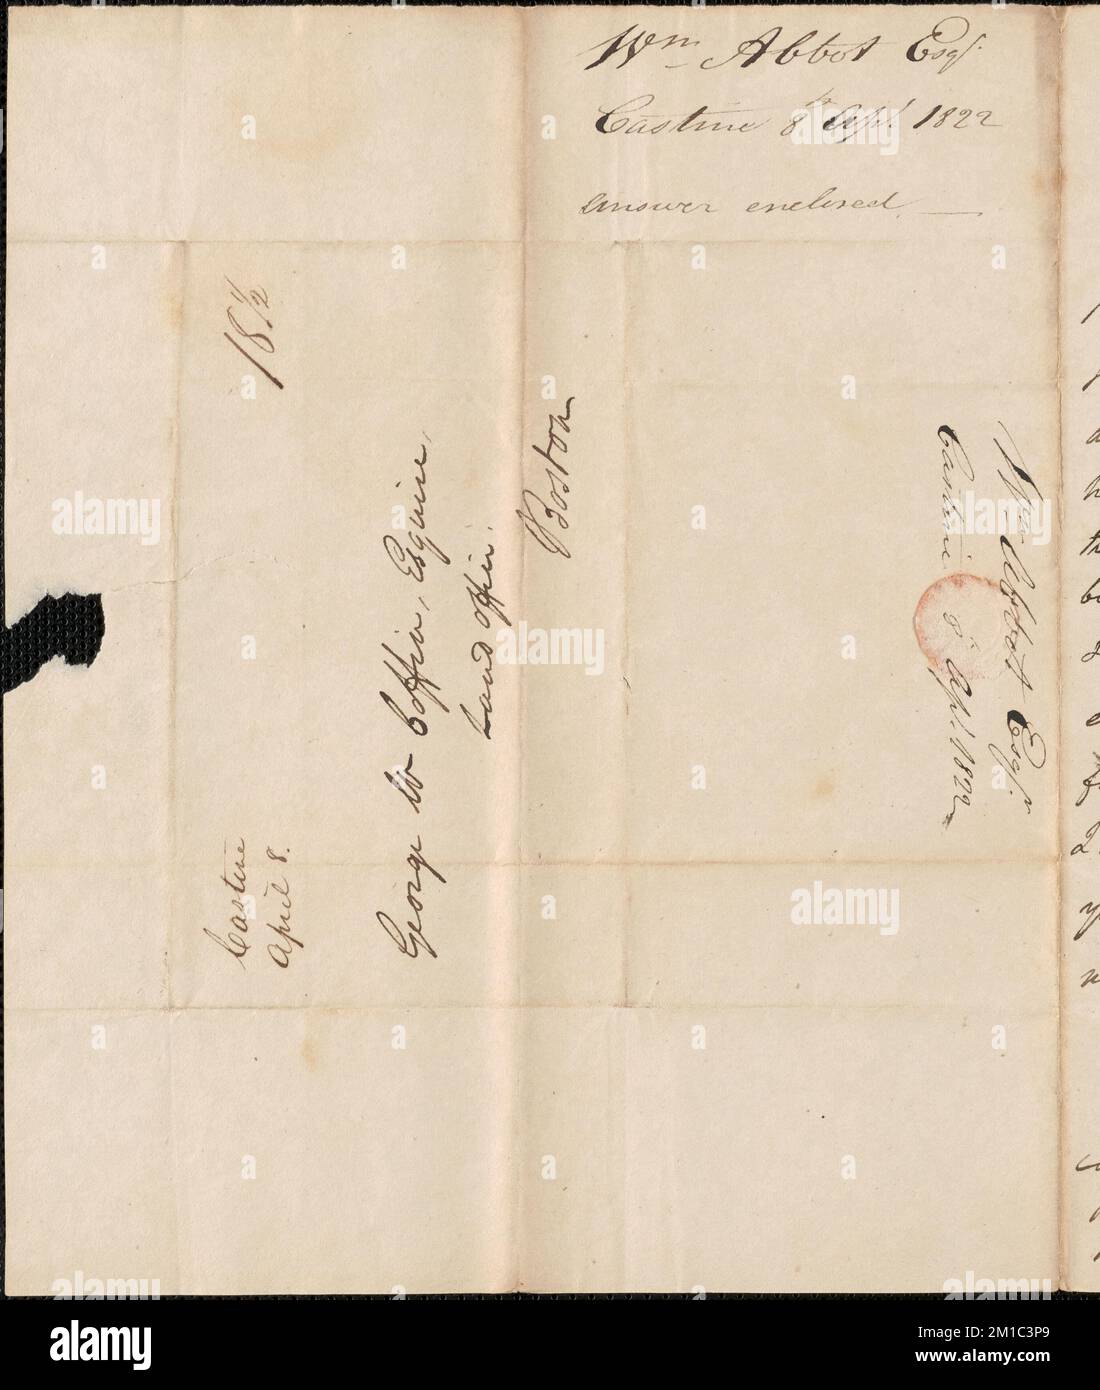 Wm Abbot Esqr.
Castine 8th Apl. 1822
answer enclosed
18 1/2
Castine
April 8.
George W Coffin, Esquire,
Land office.
Boston
Wm Abbot Esqr.
Castine 8th Apl. 1822
alamy
Image ID: 2M1C3P9
www.alamy.com